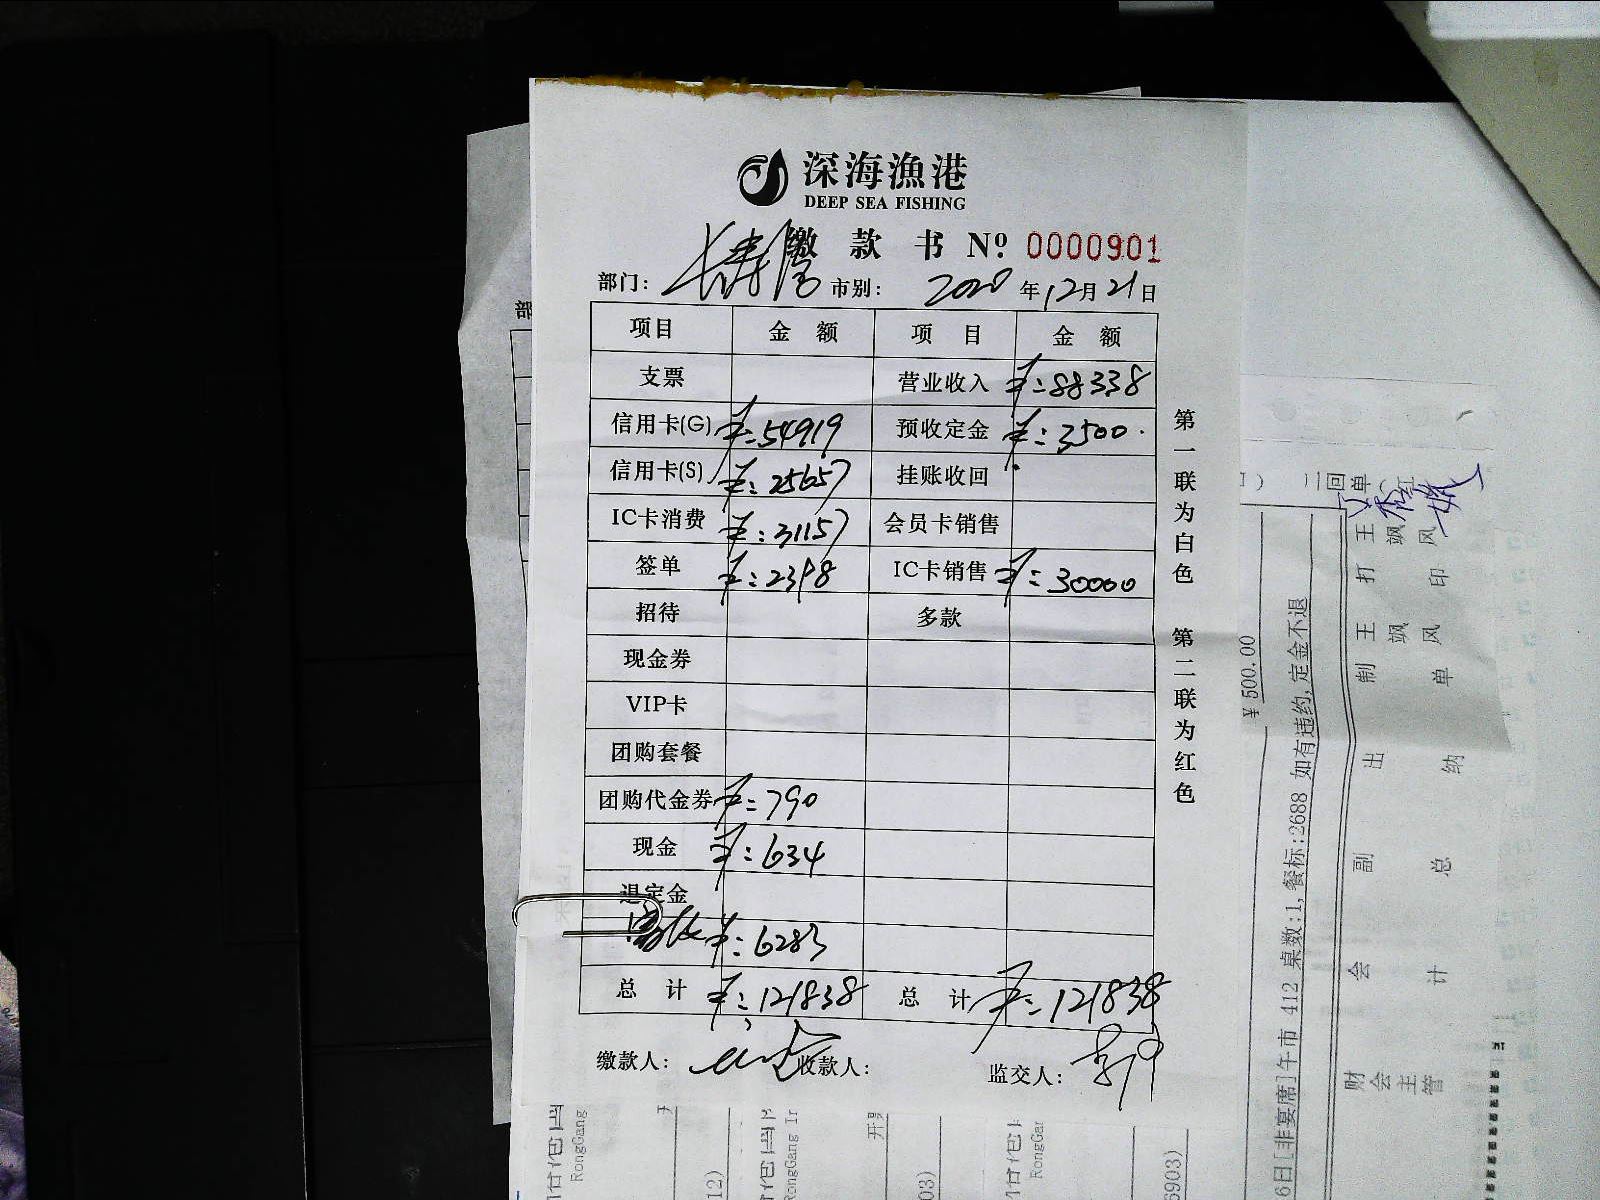 深海漁港
DEEP SEA FISHING
缴 款 书 Nº 0000901
部门: 长寿 市别: 2020 年 12 月 21 日
项目 金 额 项 目 金 额
支票 营业收入 ¥:88338
信用卡(G) ¥:54919 预收定金 ¥:3500
信用卡(S) ¥:25657 挂账收回
IC卡消费 ¥:31157 会员卡销售
签单 ¥:2398 IC卡销售 ¥:30000
招待 多款
现金券
VIP卡
团购套餐
团购代金券 ¥:790
现金 ¥:634
退定金
¥:6283
总 计 ¥:121838 总 计 ¥:121838
缴款人: 收款人: 监交人:
第一联为白色 第二联为红色
部
二回单(红
¥500.00
6日[非宴席]午市 412 桌数:1,餐标:2688 如有违约,定金不退
打印 王飒风
制单 王飒风
出纳
副总
会计
财会主管
RongGang
RongGang Ir
RongGar
12)
03)
6903)